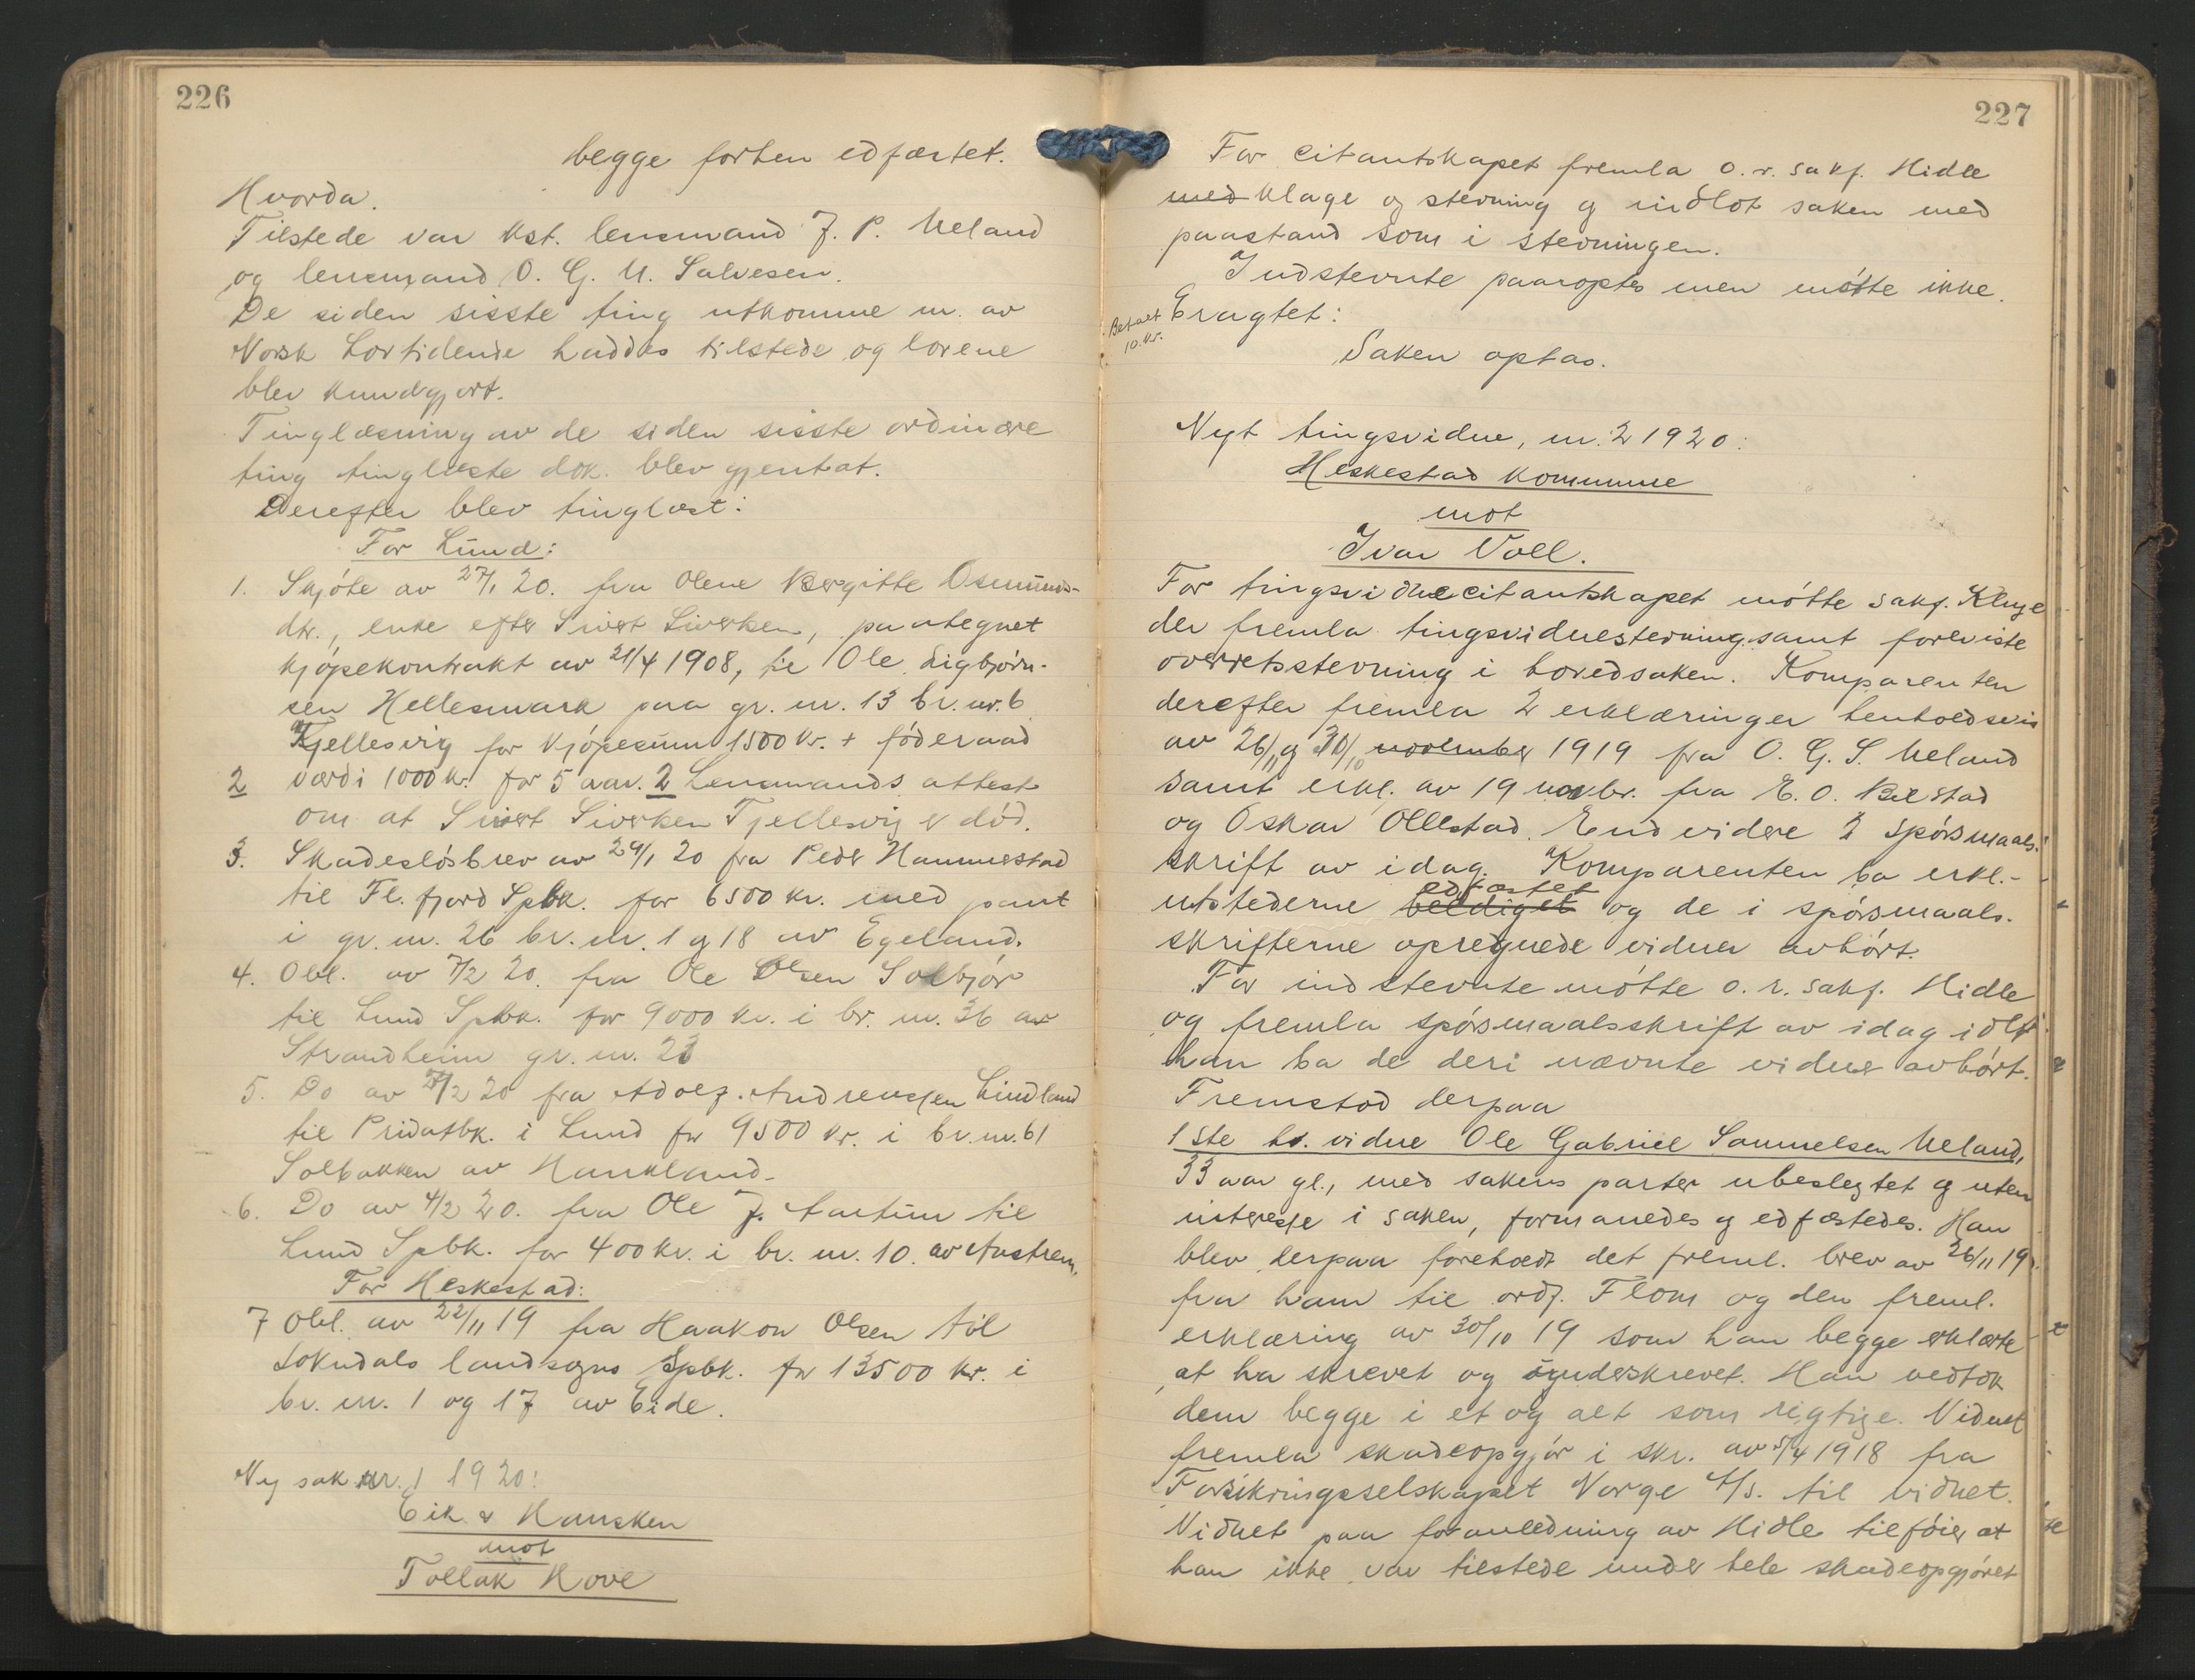 226
begge forhen edfæstet.
Hvorda.
Tilstede var kst. lensmand J. P. Ueland
og lensmand O. G. U. Salvesen.
De siden sisste ting utkomne nr. av
Norsk Lovtidende haddes tilstede og lovene
blev kundgjort.
Tinglæsning av de siden sisste ordinære
ting tinglæste dok. blev gjentat.
Derefter blev tinglæst:
For Lund:
1. Skjøte av 27/1 20. fra Olene Bergitte Osmunds-
dtr., enke efter Sivert Sivertsen, paategnet
kjøpekontrakt av 21/4 1908, til Ole Sigbjørn-
sen Hellesmark paa gr. nr. 13 br. nr. 6
Kjellesvig for kjøpesum 1500 kr. + føderaad
2 værdi 1000 kr. for 5 aar. 2 Lensmands attest
om at Sivert Sivertsen Tjellesvig er død.
3. Skadesløsbrev av 29/1 20 fra Peder Hammerstad
til Fl. fjord Spbk. for 6500 kr. med pant
i gr. nr. 26 br. nr. 1 og 18 av Egeland.
4. Obl. av 7/2 20. fra Ole Olsen Solbjør
til Lund Spbk. for 9000 kr. i br. nr. 36 av
Strandheim gr. nr. 23
5. Do av 7/2 20 fra Adolf Andreassen Lindland
til Privatbk. i Lund for 9500 kr. i br. nr. 61
Solbakken av Haukland.
6. Do av 4/2 20. fra Ole J. Aartun til
Lund Spbk. for 400 kr. i br. nr. 10. av Austrem.
For Heskestad:
7 Obl. av 22/11 19 fra Haakon Olsen til
Sokndals landsogns Spbk. for 13500 kr. i
br. nr. 1 og 17 av Eide.
Ny sak nr. 1 1920:
Eik & Hausken
mot
Tollak Hove
227
For citantskapet fremla o. r. sakf. Hidle
med klage og stevning og indlot saken med
paastand som i stevningen.
Indstevnte paaroptes men møtte ikke.
Betalt
10. kr.
Eragtet:
Saken optas.
Nyt tingsvidne, nr. 2 1920:
Heskestad kommune
mot
Ivar Voll.
For tingsvidnecitantskapet møtte sakf. Kluge
der fremla tingsvidnestevning samt foreviste
overretsstevning i hovedsaken. Komparenten
derefter fremla 2 erklæringer henholdsvis
av 26/11 og 30/10 november 1919 fra O. G. S. Ueland
samt erkl. av 19 novbr. fra E. O. Bilstad
og Oskar Ollestad. Endvidere 2 spørsmaals-
skrift av idag. Komparenten ba erkl.-
edfæstet
utstederne beediget og de i spørsmaals-
skrifterne opregnede vidner avhørt.
For indstevnte møtte o. r. sakf. Hidle
og fremla spørsmaalsskrift av idag idet
han ba de deri nævnte vidner avhørt.
Fremstod derpaa
1ste hs. vidne Ole Gabriel Samuelsen Ueland,
33 aar gl., med sakens parter ubeslegtet og uten
interesse i saken, formanedes og edfæstedes. Han
blev derpaa foreholdt det freml. brev av 26/11 19
fra ham til ordf. Flom og den freml.
erklæring av 30/10 19 som han begge erklærte
at ha skrevet og underskrevet. Han vedtok
dem begge i et og alt som rigtige. Vidnet
fremla skadeopgjør i skr. av 5/4 1918 fra
Forsikringsselskapet Norge A/S. til vidnet.
Vidnet paa foranledning av Hidle tilføier at
han ikke var tilstede under hele skadeopgjøret